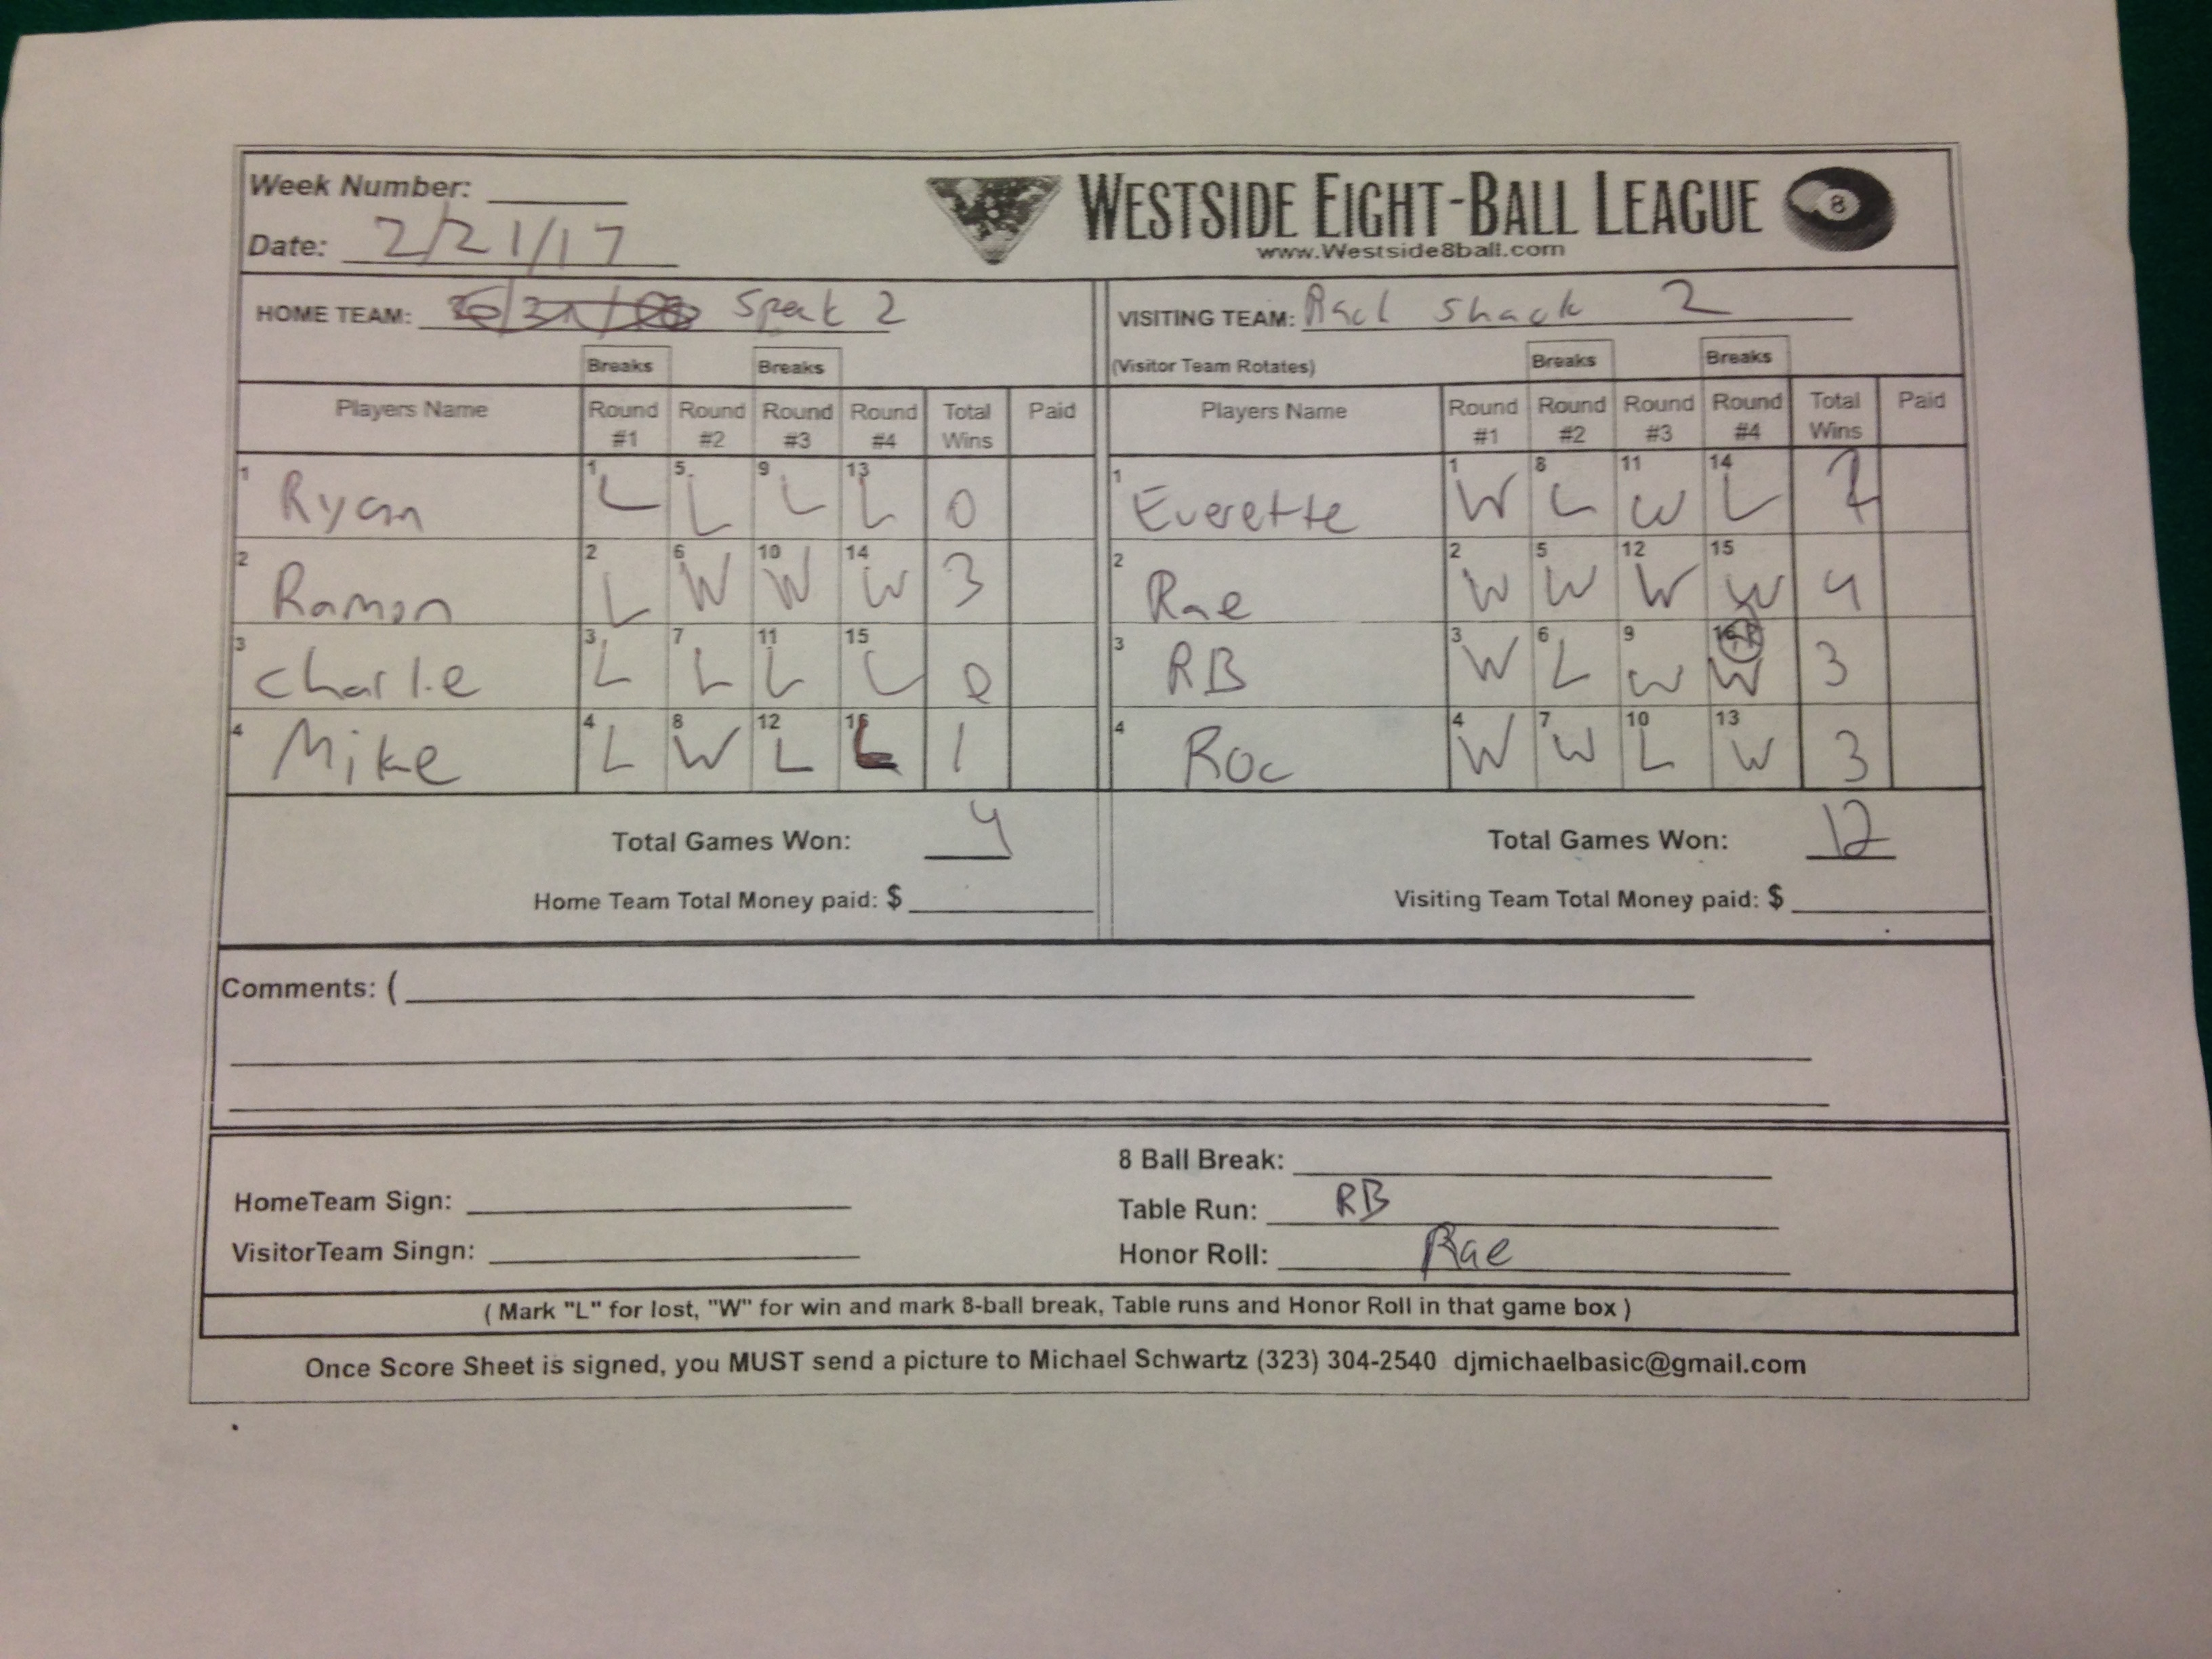 Week Number:
WESTSIDE EIGHT-BALL LEAGUE 8
Date: 2/21/17
www.Westside8ball.com
HOME TEAM: Spark 2 VISITING TEAM: Rack Shack 2
Breaks Breaks (Visitor Team Rotates) Breaks Breaks
Players Name Round #1 Round #2 Round #3 Round #4 Total Wins Paid Players Name Round #1 Round #2 Round #3 Round #4 Total Wins Paid
1 Ryan 1 L 5 L 9 L 13 L 0 1 Everette 1 W 8 L 11 W 14 L 2
2 Ramon 2 L 6 W 10 W 14 W 3 2 Rae 2 W 5 W 12 W 15 W 4
3 Charlie 3 L 7 L 11 L 15 L 0 3 RB 3 W 6 L 9 W 16 W 3
4 Mike 4 L 8 W 12 L 16 L 1 4 Roc 4 W 7 W 10 L 13 W 3
Total Games Won: 4 Total Games Won: 12
Home Team Total Money paid: $ Visiting Team Total Money paid: $
Comments: (
8 Ball Break:
HomeTeam Sign: Table Run: RB
VisitorTeam Singn: Honor Roll: Rae
( Mark "L" for lost, "W" for win and mark 8-ball break, Table runs and Honor Roll in that game box )
Once Score Sheet is signed, you MUST send a picture to Michael Schwartz (323) 304-2540 djmichaelbasic@gmail.com